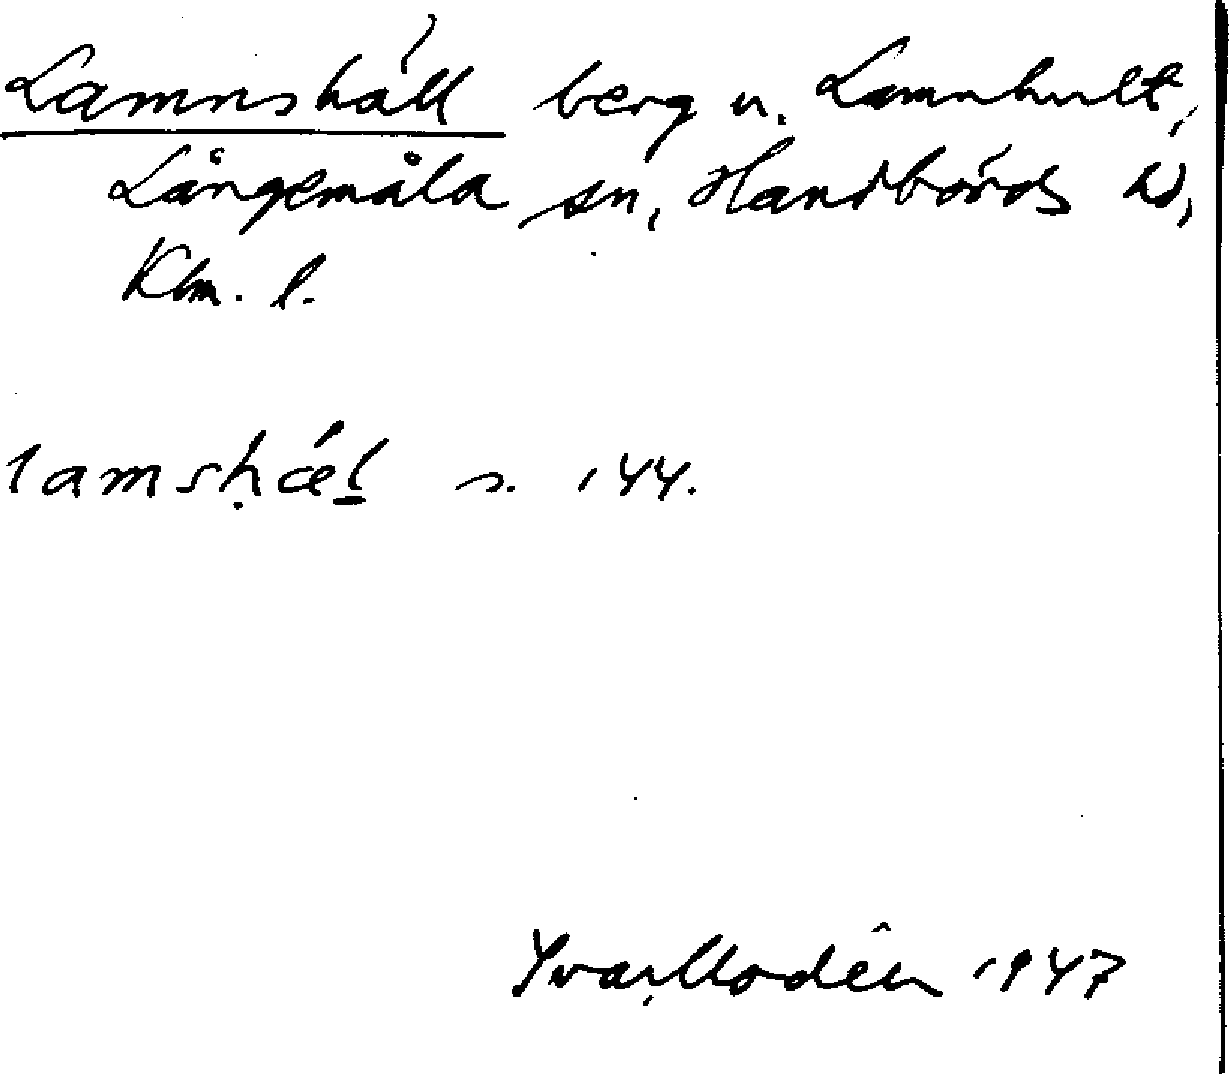 Lamnshäll berg u. Lamnhult,
Långemåla sn, Handbörds hd,
Klm. l.
lamshǽl s. 144.
Yvar Modéer 1947